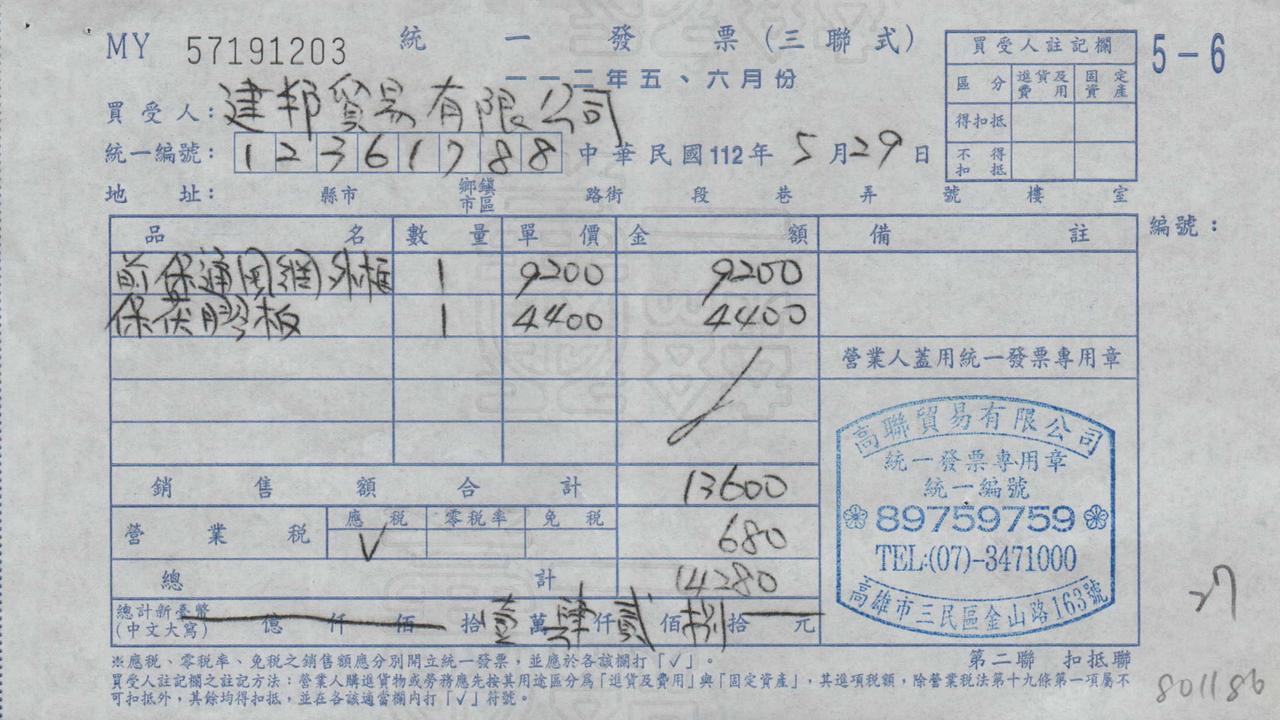 MY 57191203 統一發票(三聯式)
一一二年五、六月份
5-6
買受人註記欄
區分 進貨及費用 固定資產
得扣抵
不得扣抵
買受人:建邦貿易有限公司
統一編號:12361788 中華民國112年5月29日
地址: 縣市 鄉鎮市區 路街 段 巷 弄 號 樓 室
品名 數量 單價 金額 備註 編號:
前保通用網外框 1 9200 9200
保 膠板 1 4400 4400
營業人蓋用統一發票專用章
銷售額合計 13600
營業稅 應稅 零稅率 免稅 680
V
總計 14280
總計新臺幣(中文大寫) 億 仟 佰 拾 壹 萬 肆 仟 貳 佰 捌 拾 元
高聯貿易有限公司
統一發票專用章
統一編號
89759759
TEL:(07)-3471000
高雄市三民區金山路163號
27
※應稅、零稅率、免稅之銷售額應分別開立統一發票,並應於各該欄打「✓」。
第二聯 扣抵聯
買受人註記欄之註記方法:營業人購進貨物或勞務應先按其用途區分為「進貨及費用」與「固定資產」,其進項稅額,除營業稅法第十九條第一項屬不
可扣抵外,其餘均得扣抵,並在各該適當欄內打「✓」符號。
801186